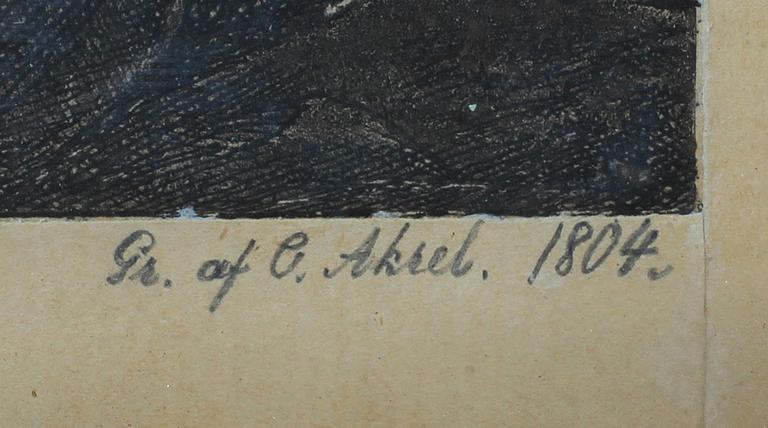 Gr. af C. Akrel. 1804.